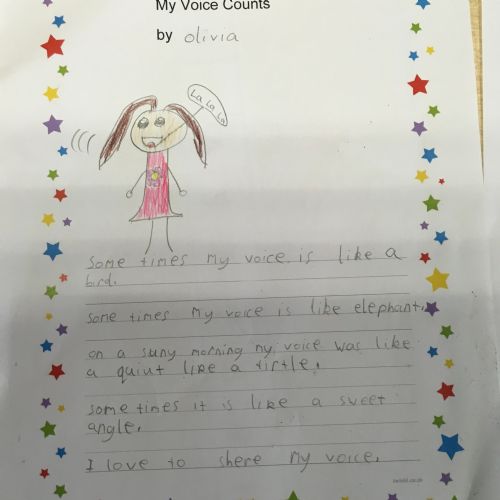 My Voice Counts
by olivia
La La La
Some times My voice is like a
bird.
some times My voice is like elephant.
on a suny morning my voice was like
a quiut like a tirtle.
some times it is like a sweet
angle.
I love to shere My voice.
twinkl.co.uk